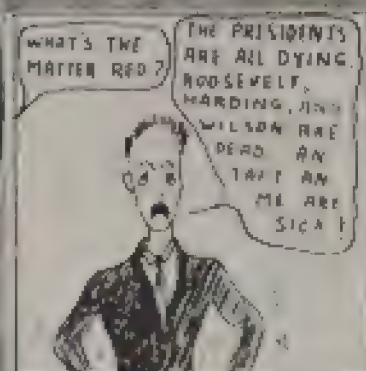 WHAT'S THE
MATTER RED?
THE PRESIDENTS
ARE ALL DYING.
ROOSEVELT,
HARDING, AND
WILSON ARE
DEAD AN
TAFT AN
ME ARE
SICK!